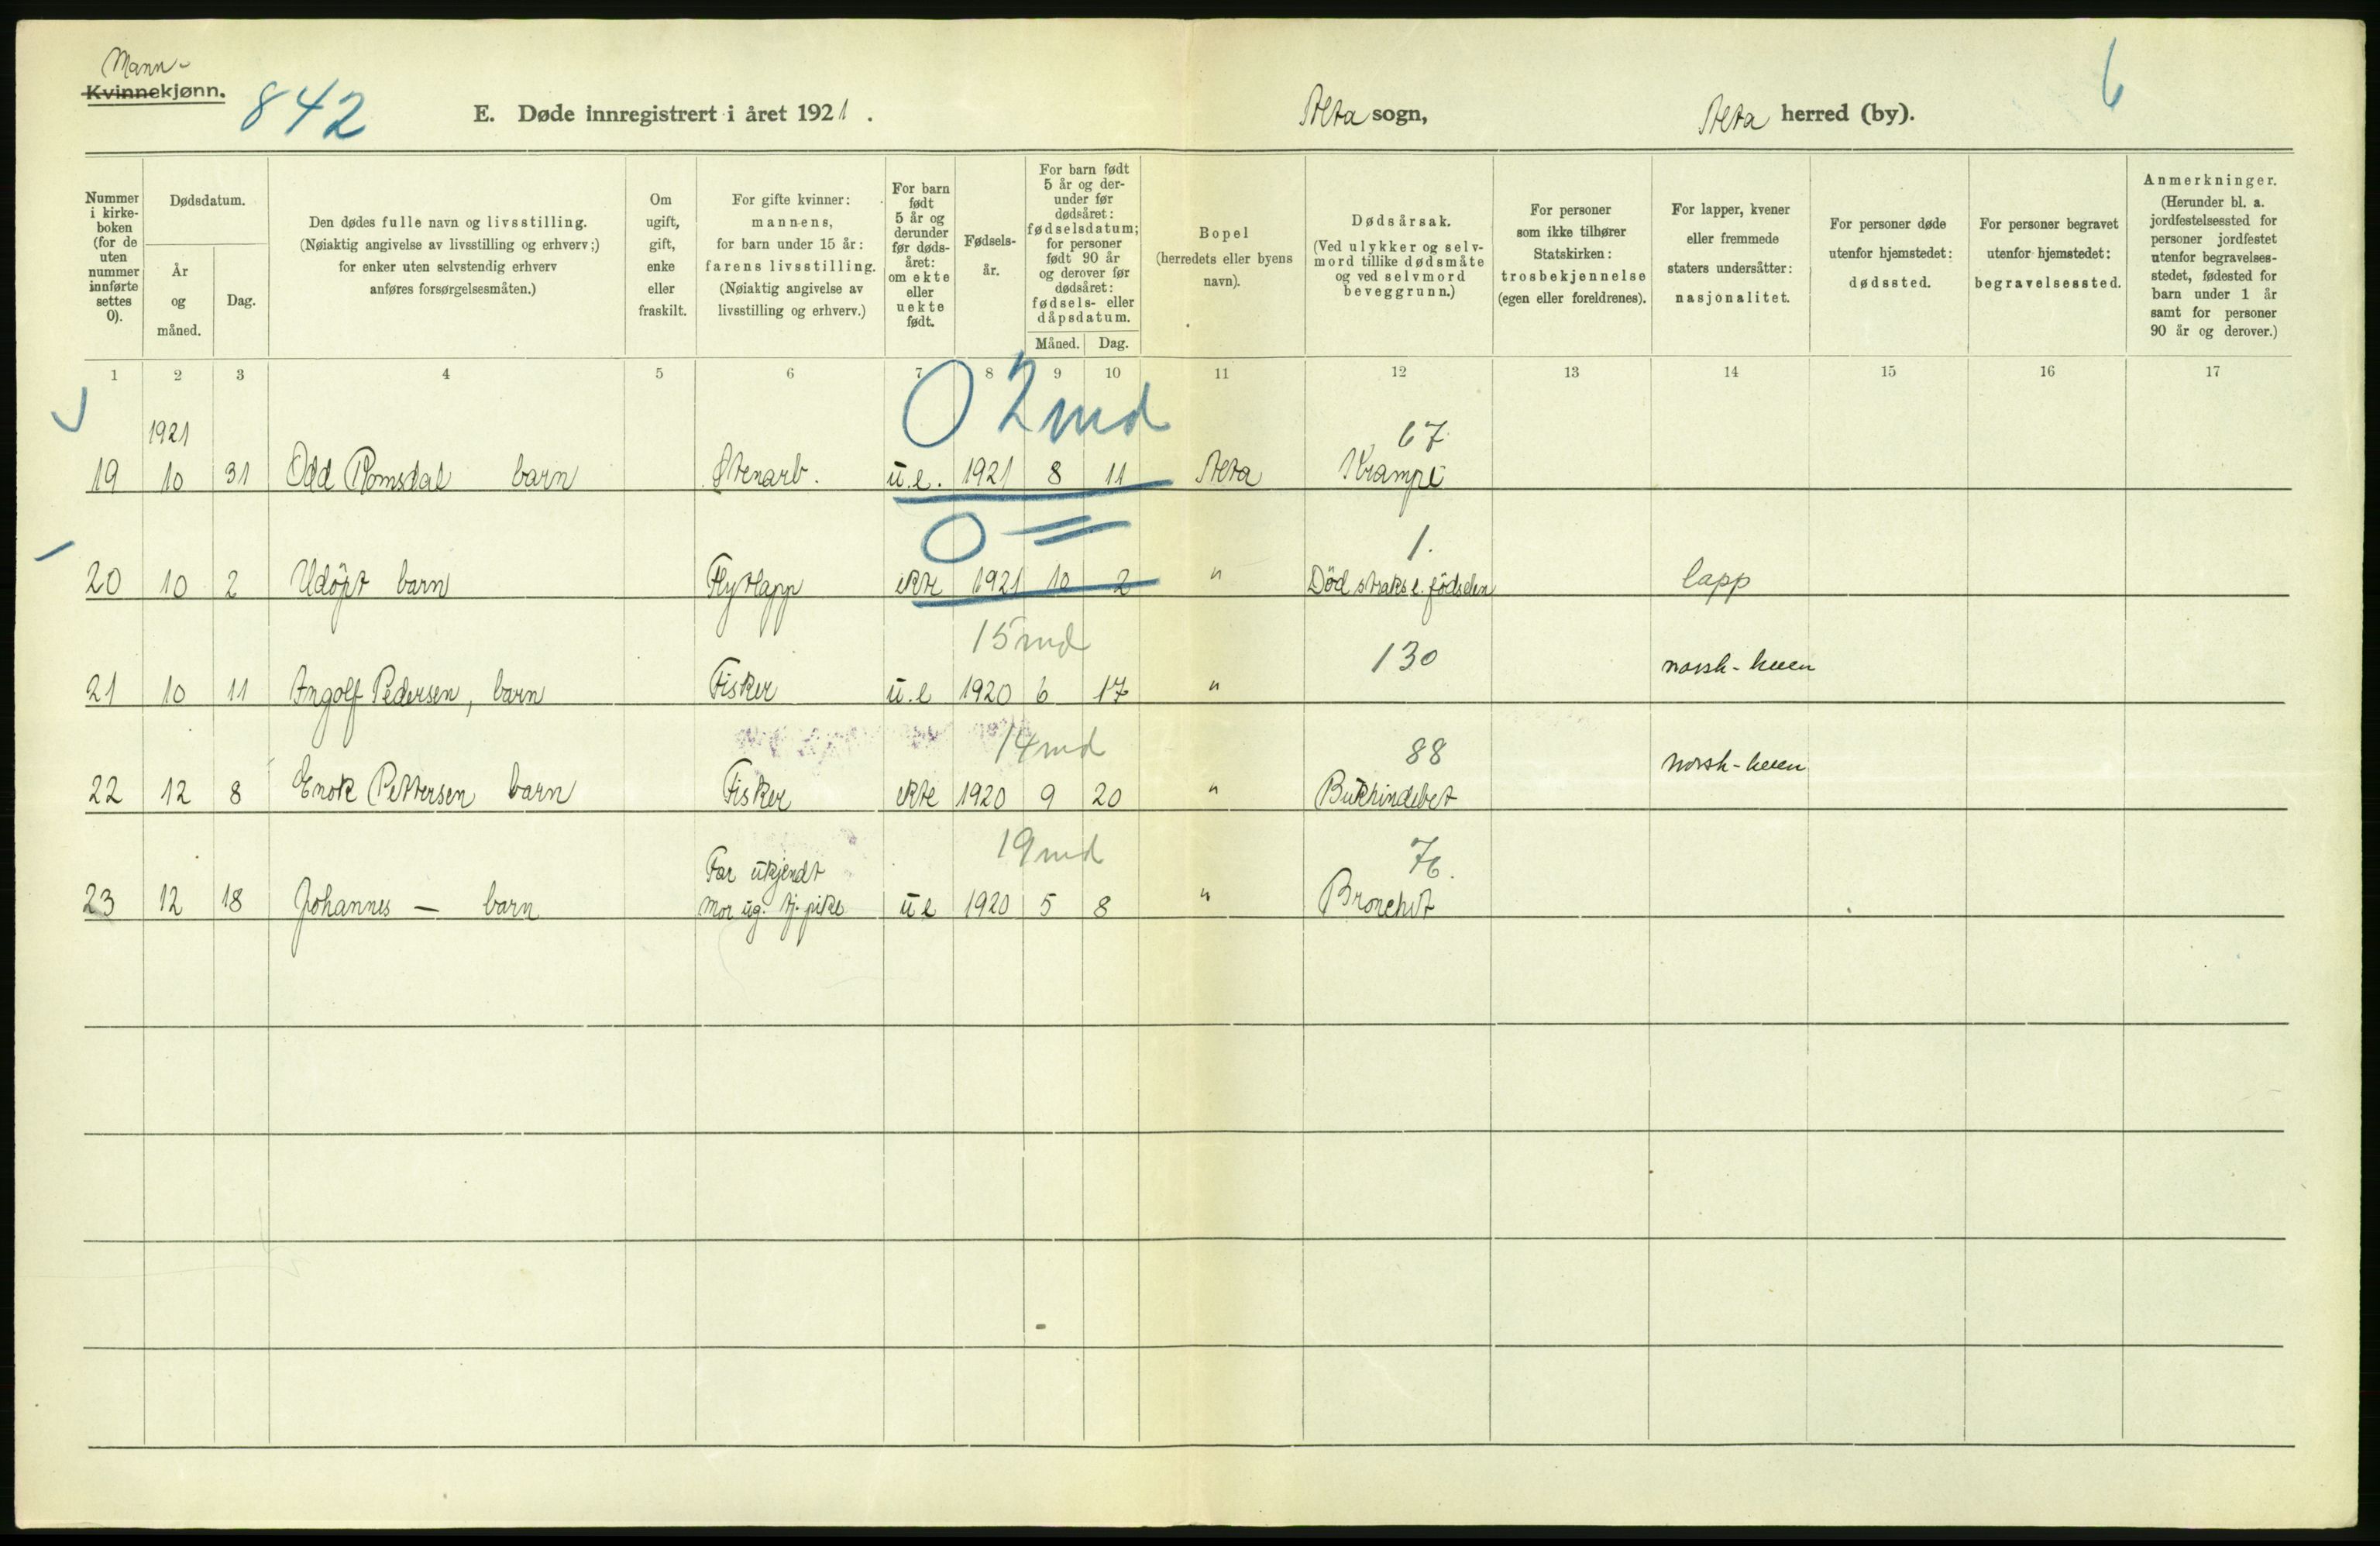 Mann-
Kvinnekjønn.
842
E. Døde innregistrert i året 1921.
Alta sogn,
Alta herred (by).
6
Nummer i kirke-boken (for de uten nummer innførte settes 0).
Dødsdatum.
År og måned.
Dag.
Den dødes fulle navn og livsstilling.
(Nøiaktig angivelse av livsstilling og erhverv;)
for enker uten selvstendig erhverv
anføres forsørgelsesmåten.)
Om ugift, gift, enke eller fraskilt.
For gifte kvinner: mannens, for barn under 15 år: farens livsstilling. (Nøiaktig angivelse av livsstilling og erhverv.)
For barn født 5 år og derunder før døds-året: om ekte eller uekte født.
Fødsels-år.
For barn født 5 år og der-under før dødsåret: fødselsdatum; for personer født 90 år og derover før dødsåret: fødsels- eller dåpsdatum.
Måned. Dag.
Bopel (herredets eller byens navn).
Dødsårsak. (Ved ulykker og selv-mord tillike dødsmåte og ved selvmord beveggrunn.)
For personer som ikke tilhører Statskirken: trosbekjennelse (egen eller foreldrenes).
For lapper, kvener eller fremmede staters undersåtter: nasjonalitet.
For personer døde utenfor hjemstedet: dødssted.
For personer begravet utenfor hjemstedet: begravelsessted.
Anmerkninger. (Herunder bl. a. jordfestelsessted for personer jordfestet utenfor begravelses-stedet, fødested for barn under 1 år samt for personer 90 år og derover.)
1 2 3 4 5 6 7 8 9 10 11 12 13 14 15 16 17
0 2 md
1921
67
19 10 31 Odd Romsdal barn Stenarb. u.e. 1921 8 11 Alta Krampe
0 =
1.
20 10 2 Udöpt barn Flytlapp ekte 1921 10 2 " Död straks e. födselen lapp
15 md
130
norsk-kven
21 10 11 Ingolf Pedersen, barn Fisker u.e 1920 6 17 "
14 md
88
norsk-kven
22 12 8 Enok Pettersen barn Fisker ekte 1920 9 20 "
19 md
76.
Far ukjendt
23 12 18 Johannes — barn Mor ug. tj. pike u e 1920 5 8 " Bronchit